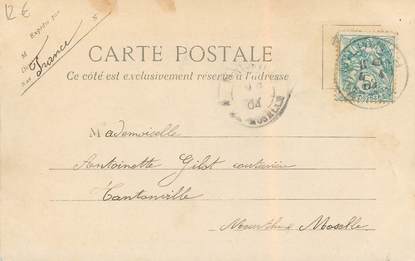 12€
Expédié par
M
France
CARTE POSTALE
Ce côté est exclusivement réservé à l'adresse
04
MOSELLE
Mademoiselle
Antoinette Gilot couturière
Tantonville
Meurthe Moselle